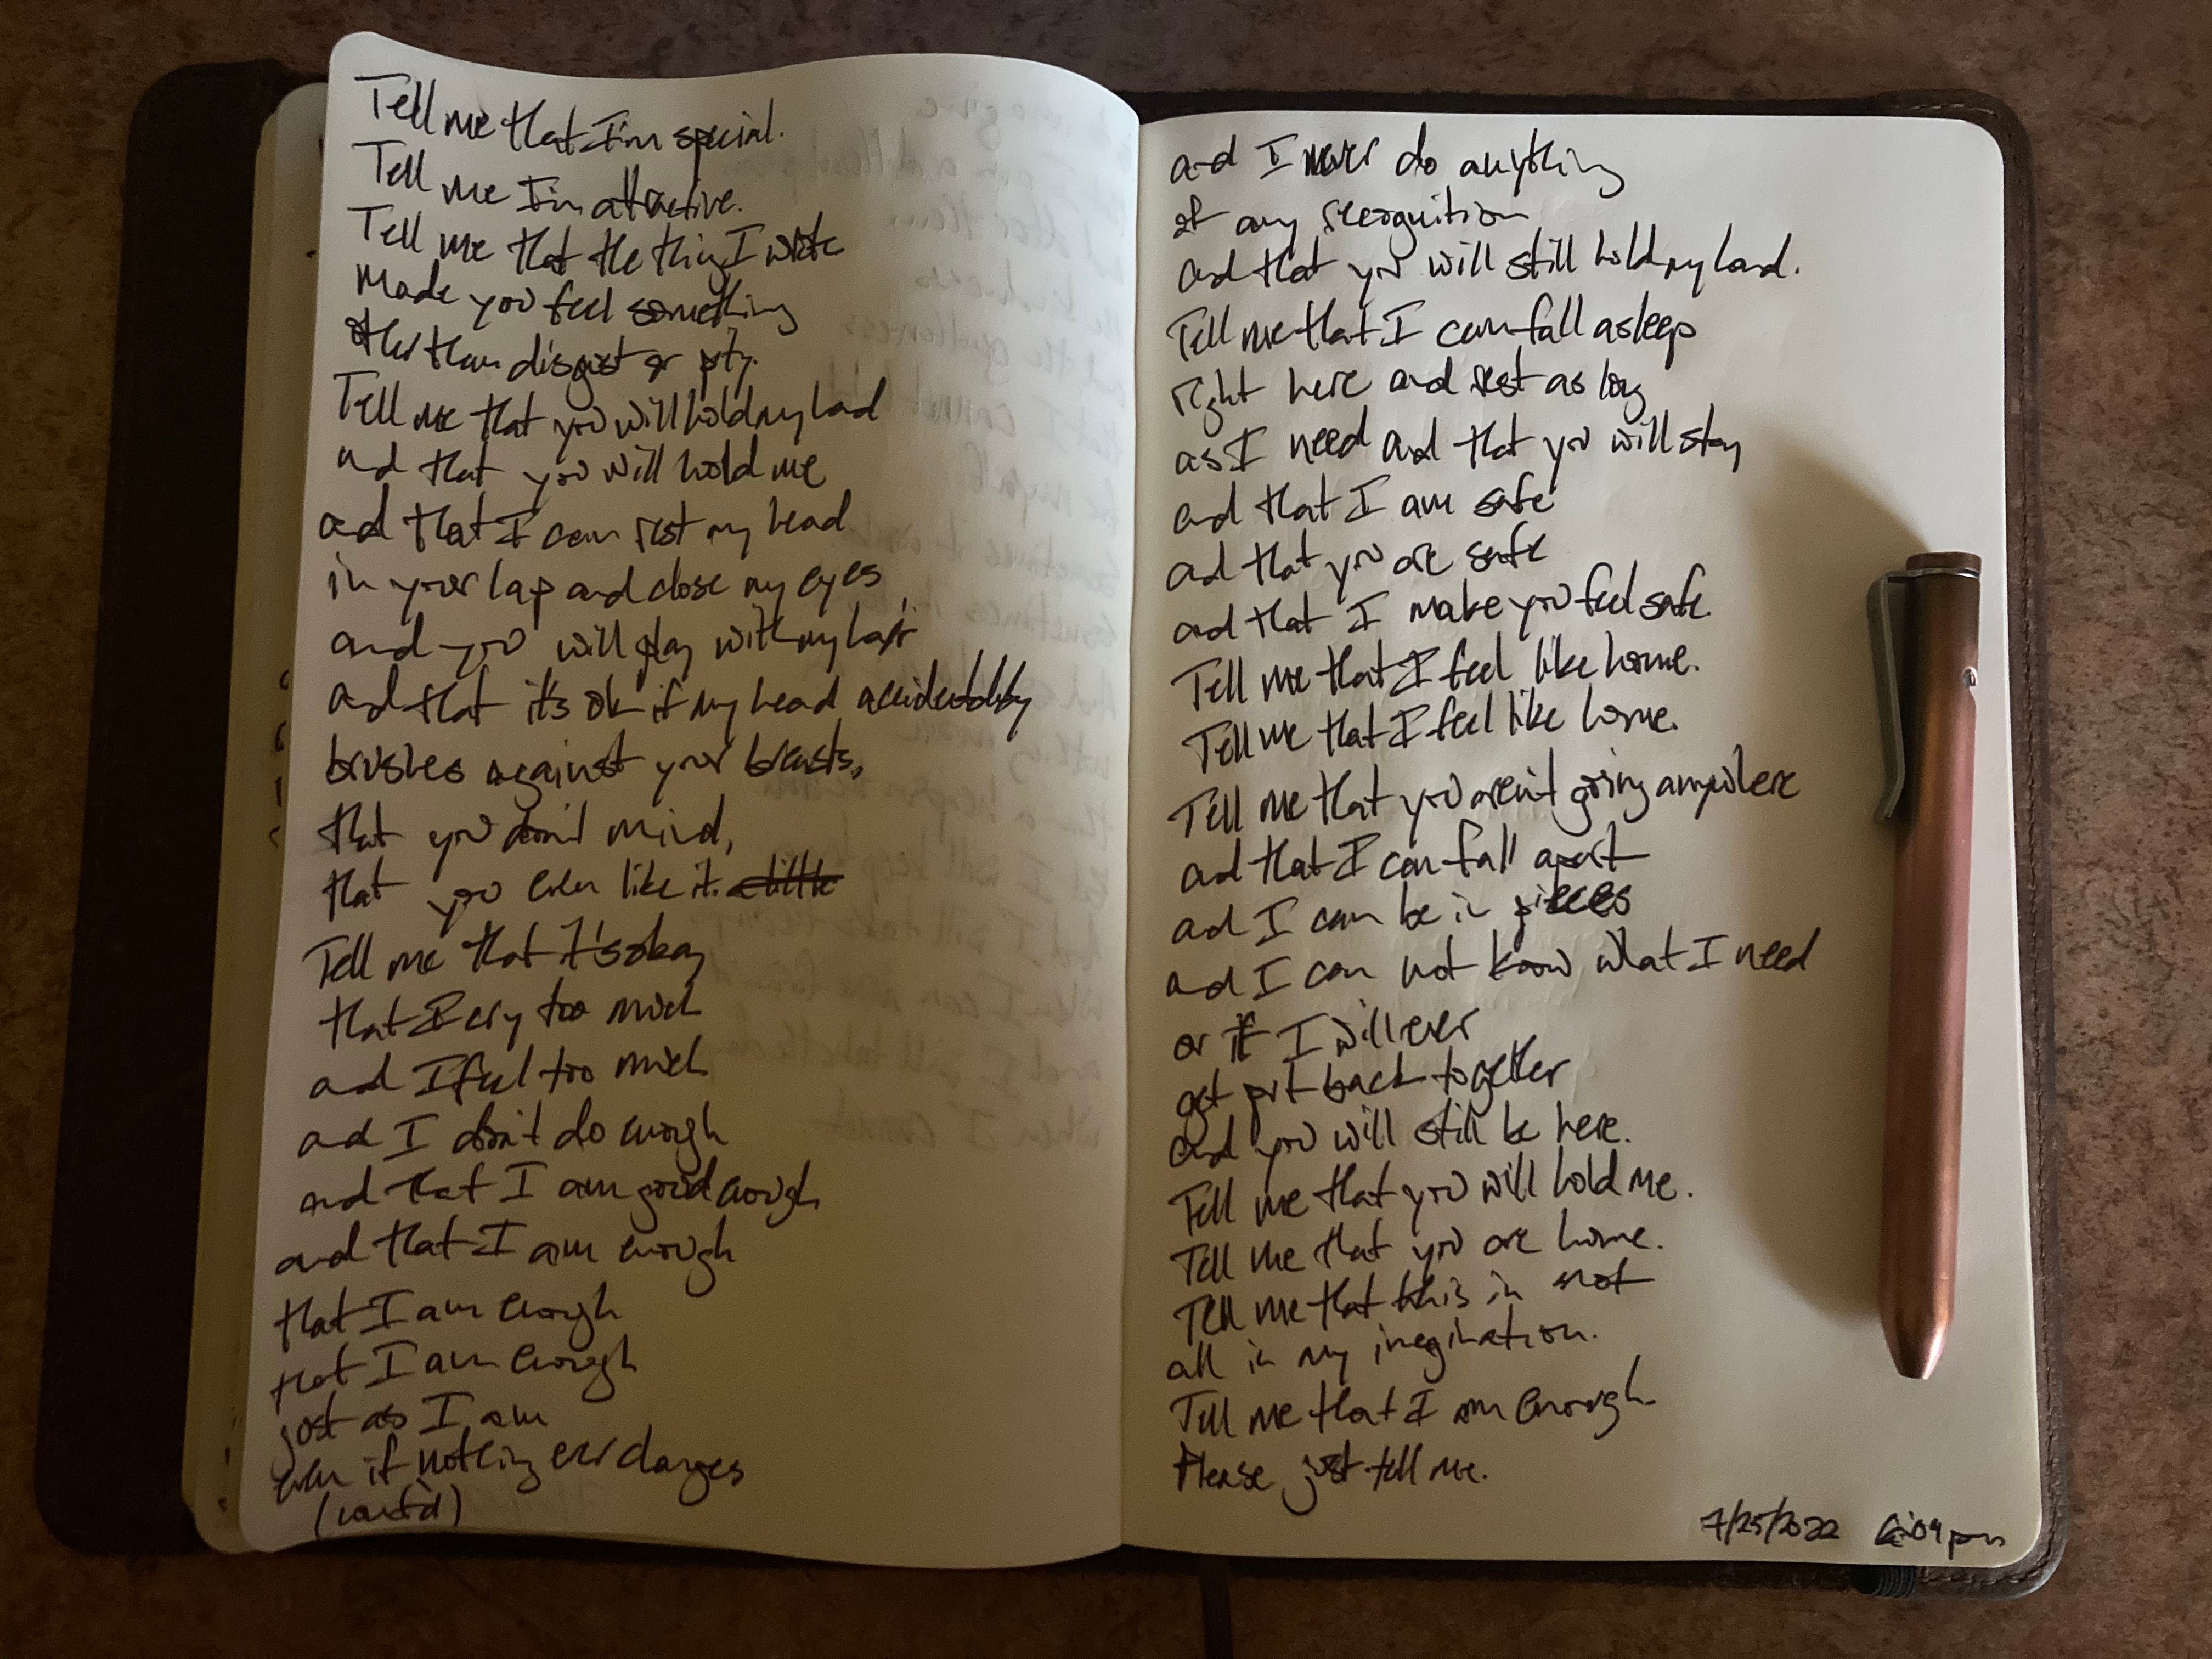 Tell me that I'm special.
Tell me I'm attractive.
Tell me that the thing I wrote
made you feel something
other than disgust or pity.
Tell me that you will hold my hand
and that you will hold me
and that I can rest my head
in your lap and close my eyes
and you will play with my hair
and that it's ok if my head accidentally
brushes against your breasts,
that you don't mind,
that you even like it. a little
Tell me that it's okay
that I cry too much
and I feel too much
and I don't do enough
and that I am good enough
and that I am enough
that I am enough
that I am enough
just as I am
even if nothing ever changes
(cont'd)
and I never do anything
of any recognition
and that you will still hold my hand.
Tell me that I can fall asleep
right here and rest as long
as I need and that you will stay
and that I am safe
and that you are safe
and that I make you feel safe.
Tell me that I feel like home.
Tell me that I feel like home.
Tell me that you aren't going anywhere
and that I can fall apart
and I can be in pieces
and I can not know what I need
or if I will ever
get put back together
and you will still be here.
Tell me that you will hold me.
Tell me that you are home.
Tell me that this in not
all in my imagination.
Tell me that I am enough.
Please just tell me.
7/25/2022 6:09pm